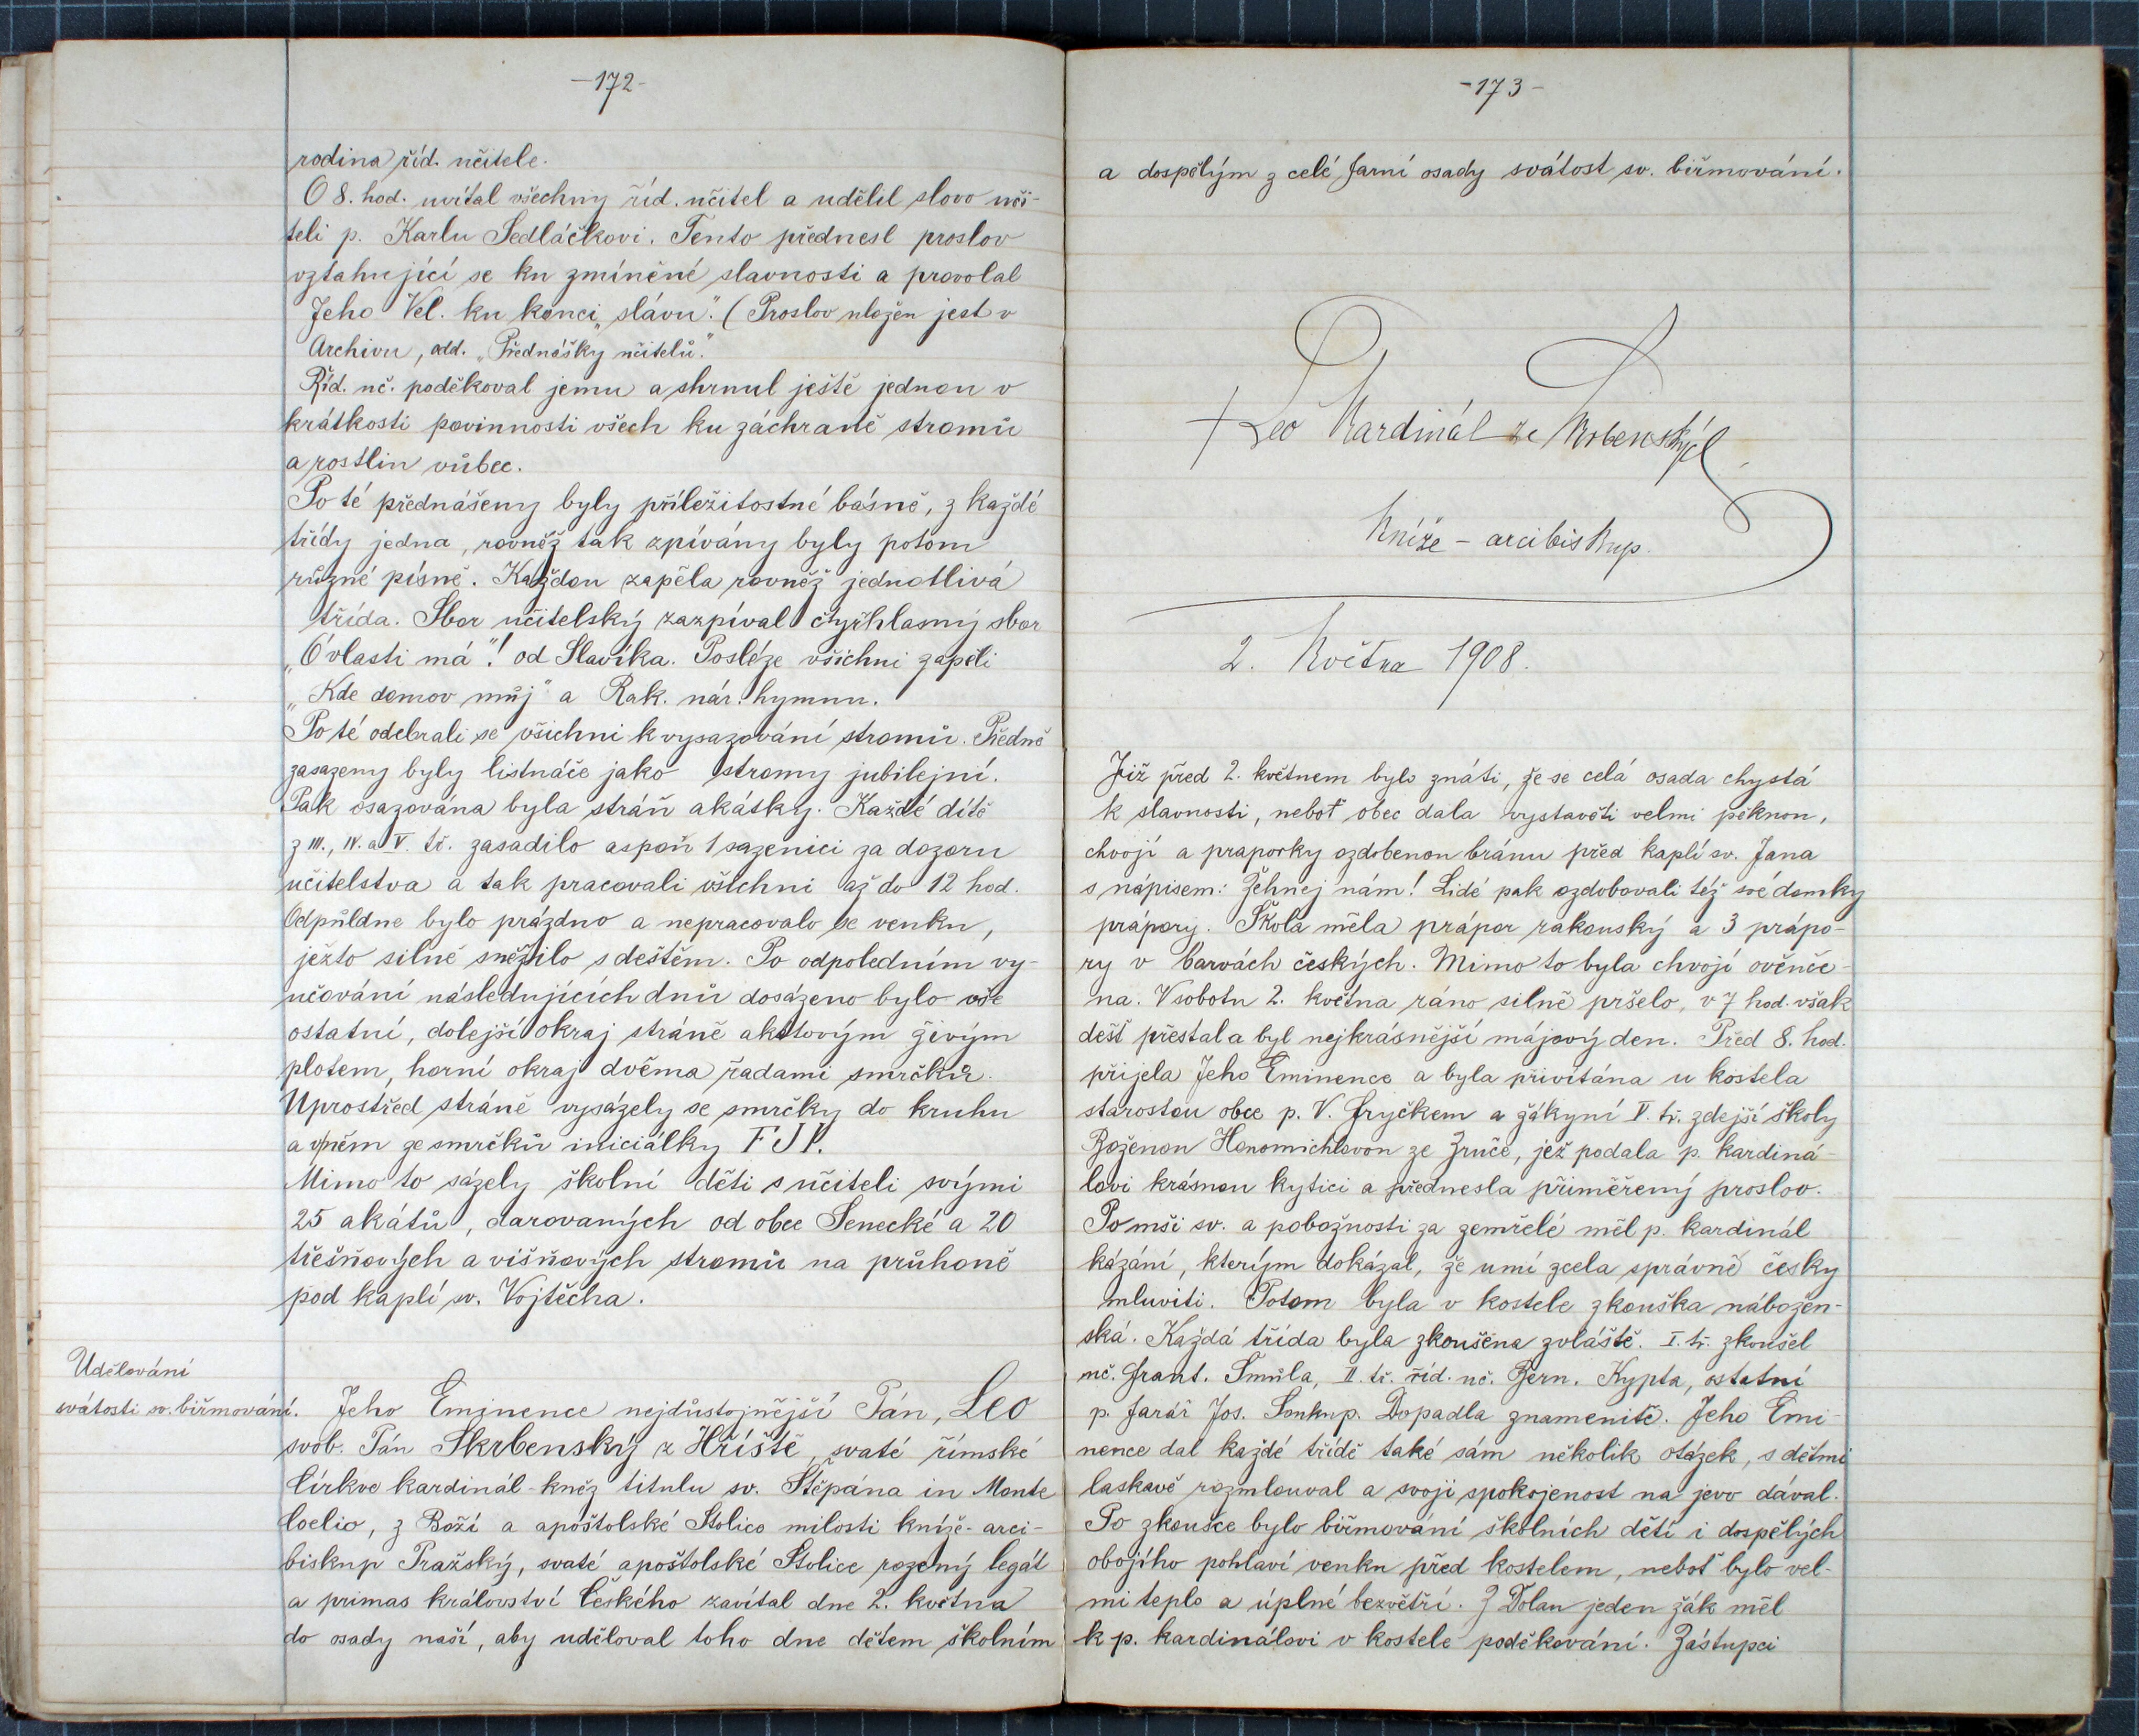 -172-
rodina říd. učitele.
O 8. hod. uvítal všechny říd. učitel a udělil slovo uči-
teli p. Karlu Sedláčkovi. Tento přednesl proslov
vztahující se ku zmíněné slavnosti a provolal
Jeho Vel. ku konci „slávu". (Proslov uložen jest v
Archivu, odd. „Přednášky učitelů."
Říd. uč. poděkoval jemu a shrnul ještě jednou v
krátkosti povinnosti všech ku záchraně stromů
a rostlin vůbec.
Po té přednášeny byly příležitostné básně, z každé
třídy jedna, rovněž tak zpívány byly potom
různé písně. Každou zapěla rovněž jednotlivá
třída. Sbor učitelský zazpíval čtyřhlasný sbor
„Ó vlasti má"! od Slavíka. Posléze všichni zapěli
„Kde domov můj" a Rak. nár. hymnu.
Po té odebrali se všichni k vysazování stromů. Předně
zasazeny byly listnáče jako stromy jubilejní.
Pak osazována byla stráň akátky. Každé dítě
z III., IV. a V. tř. zasadilo aspoň 1 sazenici za dozoru
učitelstva a tak pracovali všichni až do 12 hod.
Odpůldne bylo prázdno a nepracovalo se venku,
ježto silně sněžilo s deštěm. Po odpoledním vy-
učování následujících dnů dosázeno bylo vše
ostatní, dolejší okraj stráně akátovým živým
plotem, horní okraj dvěma řadami smrčků.
Uprostřed stráně vysázely se smrčky do kruhu
a v něm ze smrčků iniciálky FJI.
Mimo to sázely školní děti s učiteli svými
25 akátů, darovaných od obce Senecké a 20
třešňových a višňových stromů na průhoně
pod kaplí sv. Vojtěcha.
Udělování
svátosti sv. biřmování.
Jeho Eminence nejdůstojnější Pán, Leo
svob. Pán Skrbenský z Hříště, svaté římské
Církve kardinál-kněz titulu sv. Štěpána in Monte
Coelio, z Boží a apoštolské Stolice milosti kníže-arci-
biskup Pražský, svaté apoštolské Stolice rozený legát
a primas království Českého zavítal dne 2. května
do osady naší, aby uděloval toho dne dětem školním
-173-
a dospělým z celé farní osady svátost sv. biřmování.
+ Leo Kardinál ze Skrbenských
Kníže-arcibiskup.
2. Května 1908.
Již před 2. květnem bylo znáti, že se celá osada chystá
k slavnosti, neboť obec dala vystavěti velmi pěknou,
chvojí a praporky ozdobenou bránu před kaplí sv. Jana
s nápisem: Žehnej nám! Lidé pak ozdobovali též své domky
prápory. Škola měla prápor rakouský a 3 prápo-
ry v barvách českých. Mimo to byla chvojí ověnče-
na. V sobotu 2. května ráno silně pršelo, v 7 hod. však
déšť přestal a byl nejkrásnější májový den. Před 8. hod.
přijela Jeho Eminence a byla přivítána u kostela
starostou obce p. V. Fryčkem a žákyní V. tř. zdejší školy
Boženou Honomichlovou ze Zruče, jež podala p. kardiná-
lovi krásnou kytici a přednesla přiměřený proslov.
Po mši sv. a pobožnosti za zemřelé měl p. kardinál
kázání, kterým dokázal, že umí zcela správně česky
mluviti. Potom byla v kostele zkouška nábožen-
ská. Každá třída byla zkoušena zvláště. I. tř. zkoušel
uč. Frant. Šmůla, II. tř. říd. uč. Bern. Kypta, ostatní
p. farář Jos. Soukup. Dopadla znamenitě. Jeho Emi-
nence dal každé třídě také sám několik otázek, s dětmi
laskavě rozmlouval a svoji spokojenost na jevo dával.
Po zkoušce bylo biřmování školních dětí i dospělých
obojího pohlaví venku před kostelem, neboť bylo vel-
mi teplo a úplné bezvětří. Z Dolan jeden žák měl
k p. kardinálovi v kostele poděkování. Zástupci